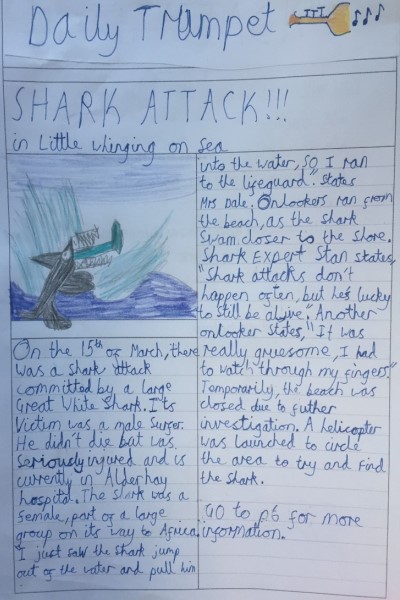 Daily Trumpet
SHARK ATTACK!!!
in Little Whinging on Sea
On the 15th of March, there
was a shark attack
committed by a large
Great White Shark. It's
Victim was a male surfer.
He didn't die but was
Seriously ingured and is
currently in Alderhay
hospital. The shark was a
female, part of a large
group on its way to Africa.
"I just saw the shark jump
out of the water and pull him
into the water, so I ran
to the lifeguard." States
Mrs Dale. Onlookers ran from
the beach, as the shark
Swam closer to the shore.
Shark Expert Stan states,
"Shark attacks don't
happen often, but he's lucky
to still be alive." Another
onlooker States, "It was
really gruesome, I had
to watch through my fingers."
Temporarily, the beach was
closed due to futher
investigation. A helicopter
was launched to circle
the area to try and find
the shark.
GO to P6 for more
information.